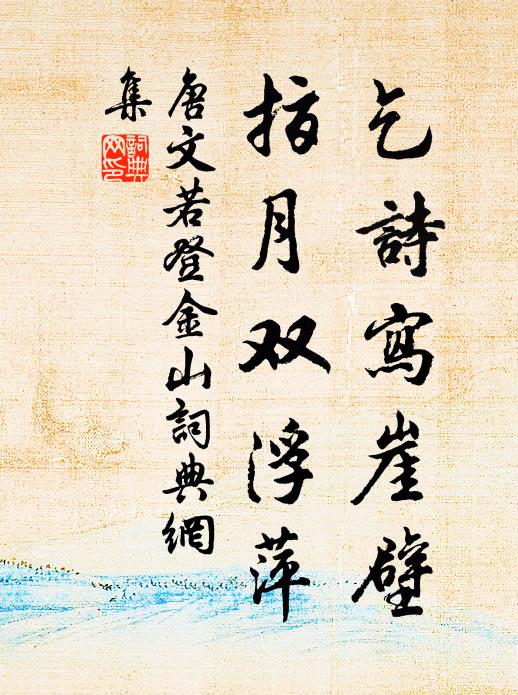 乞詩寫崖壁
指月双浮萍
唐文若登金山詞典網
集
詞典网印